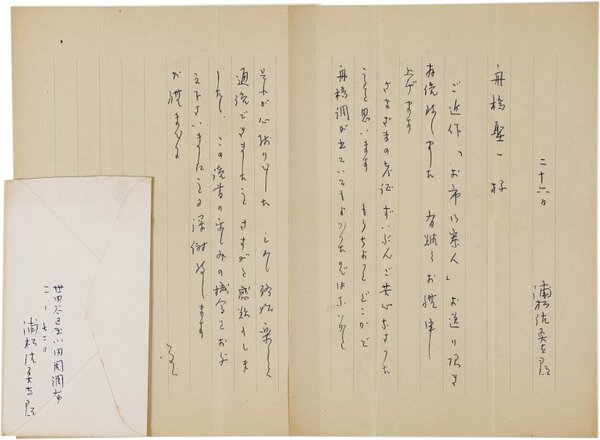 二十六日
浦松佐美太郎
舟橋聖一様
ご近作「お市御寮人」お送り頂き
拝読致しました 有難く お礼申し
上げます
さまざまの考証 ずいぶんご苦心なさった
ことと思います もうちょっとどこかで
舟橋調が出ていてもよい
が心残りでした しかし 終始楽しく
通読できましたこと さすがと感歎しま
した この読書の楽しみの機会をお与
え下さいましたことを深謝致します
お礼まで
世田谷区玉川田園調布
浦松佐美太郎